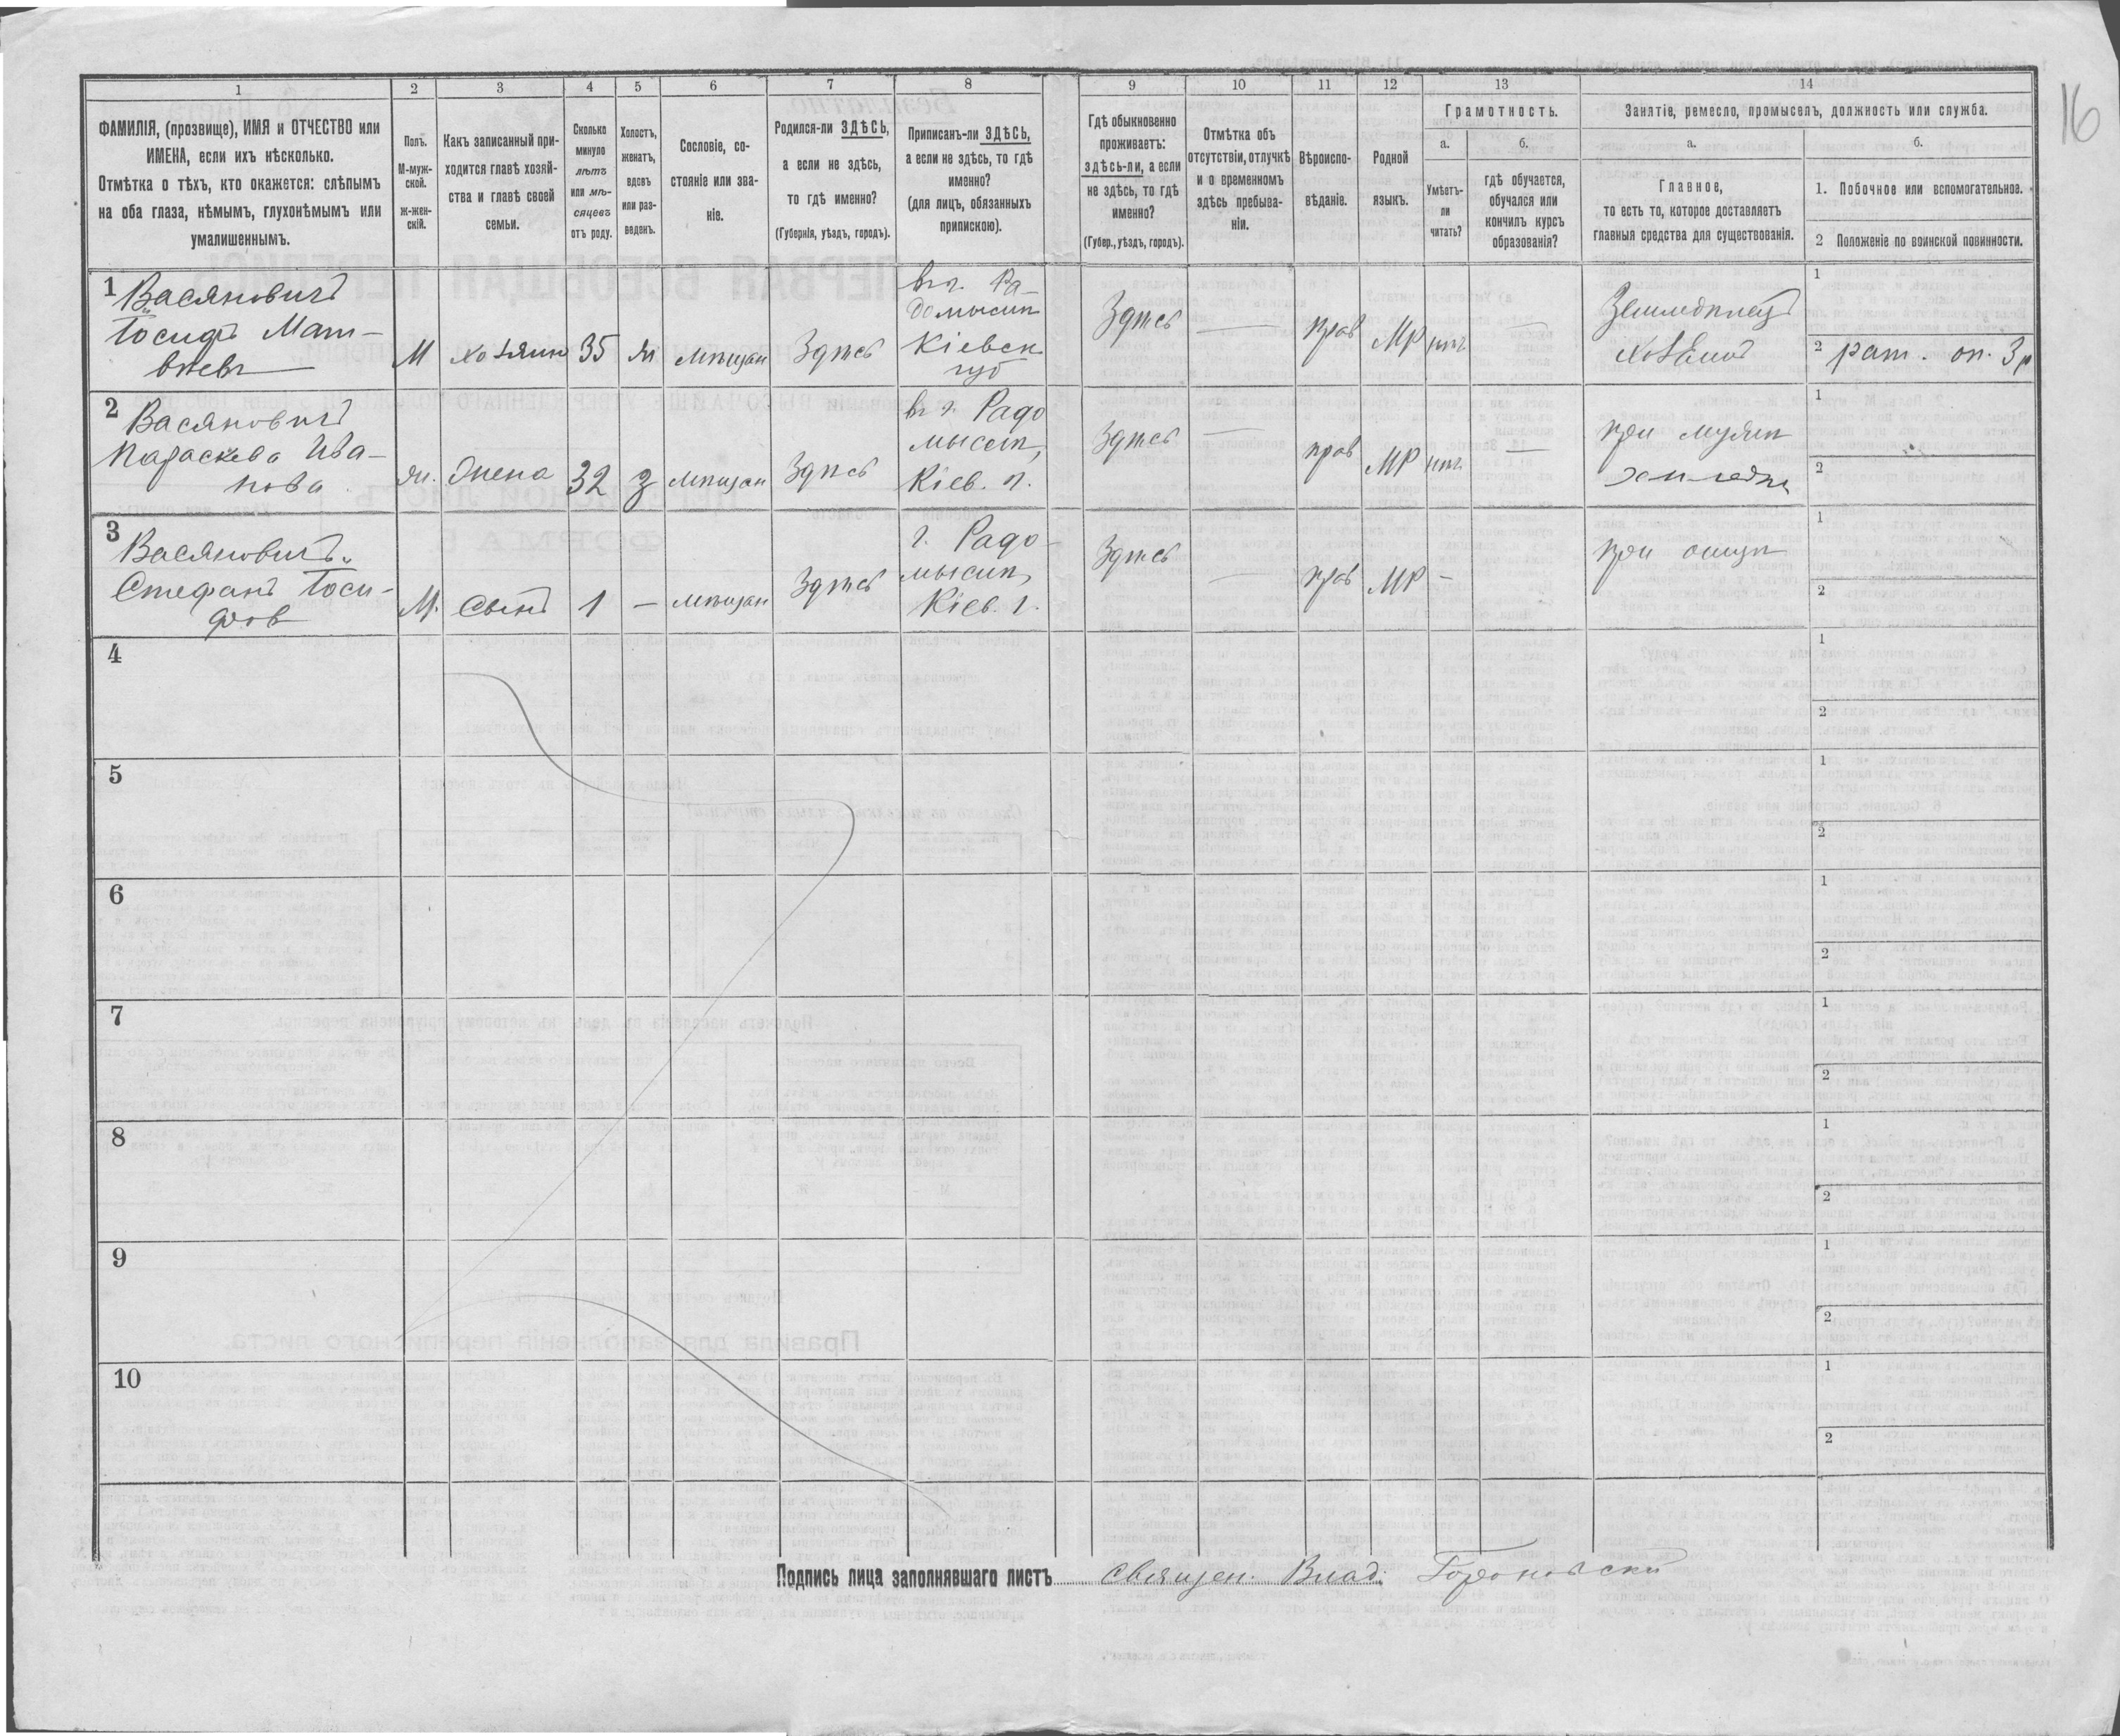 16
1
2
3
4
5
6
7
8
9
10
11
12
13
14
ФАМИЛІЯ, (прозвище), ИМЯ и ОТЧЕСТВО или
ИМЕНА, если ихъ нѣсколько.
Отмѣтка о тѣхъ, кто окажется: слѣпымъ
на оба глаза, нѣмымъ, глухонѣмымъ или
умалишеннымъ.
Полъ.
М-муж-
ской.
Ж-жен-
скій.
Какъ записанный при-
ходится главѣ хозяй-
ства и главѣ своей
семьи.
Сколько
минуло
лѣтъ
или мѣ-
сяцевъ
отъ роду.
Холостъ,
женатъ,
вдовъ
или раз-
веденъ.
Сословіе, со-
стояніе или зва-
ніе.
Родился-ли ЗДѢСЬ,
а если не здѣсь,
то гдѣ именно?
(Губернія, уѣздъ, городъ).
Приписанъ-ли ЗДѢСЬ,
а если не здѣсь, то гдѣ
именно?
(для лицъ, обязанныхъ
припискою).
Гдѣ обыкновенно
проживаетъ:
здѣсь-ли, а если
не здѣсь, то гдѣ
именно?
(Губер., уѣздъ, городъ).
Отмѣтка объ
отсутствіи, отлучкѣ
и о временномъ
здѣсь пребыва-
ніи.
Вѣроиспо-
вѣданіе.
Родной
языкъ.
Грамотность.
а.
Умѣетъ-
ли
читать?
б.
гдѣ обучается,
обучался или
кончилъ курсъ
образованія?
Занятіе, ремесло, промыселъ, должность или служба.
а.
Главное,
то есть то, которое доставляетъ
главныя средства для существованія.
б.
1. Побочное или вспомогательное.
2 Положеніе по воинской повинности.
1
Васяновичъ
Іосифъ Мат-
вѣевъ
М
хозяинъ
35
ж
мѣщан
Здѣсь
въ г. Ра-
домыслѣ
Кіевск
губ
Здѣсь
—
прав
МР
нѣтъ
—
Земледѣлецъ
хозяинъ
1
2 рат. оп. 3 р
2
Васяновичъ
Параскева Ива-
нова
ж.
Жена
32
з
мѣщан
Здѣсь
въ г. Радо
мыслѣ,
Кіев. г.
Здѣсь
—
прав
МР
нѣтъ
—
при мужѣ
земледѣл
1
2
3
Васяновичъ
Стефанъ Іоси-
фов
М.
Сынъ
1
—
мѣщан
Здѣсь
г. Радо-
мыслѣ,
Кіев. г.
Здѣсь
—
прав
МР
-
при отцѣ
1
2
4
1
2
5
1
2
6
1
2
7
1
2
8
1
2
9
1
2
10
1
2
Подпись лица заполнявшаго листъ Священ. Влад.